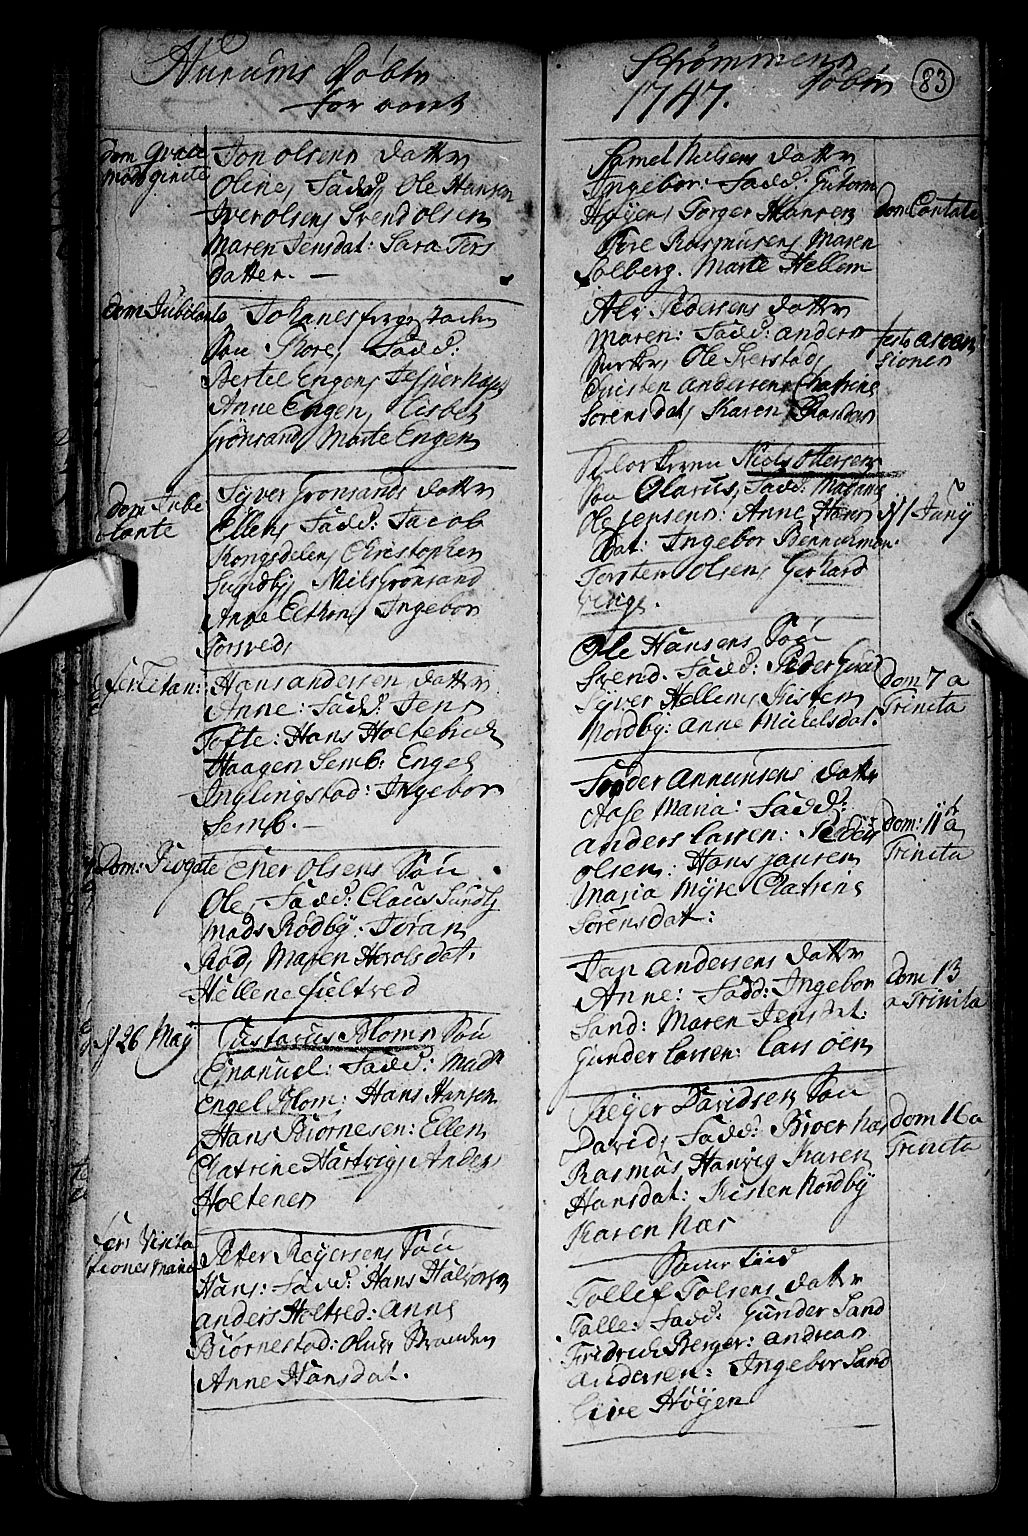 Hurums Døbte
for aaret
dom Quasi
modogenite
Jon olsens datter
Oline, Fadd: Ole Hansen
Iver olsen, Svend olsen
Maren Jensdat: Sara Iers
datter. —
dom Jubilate
Johanes
Søn Thore, Fadd:
Bertel Engen, Jesper
Anne Engen, Lisbet
Grønsand, Marte Engen
Dom Jubi
lante
Syver Gronsands datter
Ellen, Fadd: Jacob
Kongsdelen, Christopher
Sundby, Niels Grønsand
Anne Elthon, Ingebor
Torsved,
Hans andersen datter
Anne: Fadd: Jens
Tofte: Hans Holtebreck
Haagen Semb: Engel
Inglingstad: Ingebor
Semb. —
Dom: Rogate
Ener Olsens Søn
Ole, Fadd: Claus Sundby
Mads Rødby: Joran
Rød, Maren Herolsdat:
Hellene Fieltved
d 26 Maj
Gustavus Bloms Søn
Emanuel: Fadd: Madm
Engel Blom: Hans Hansen
Hans Biørnesen: Ellen
Chatrine Hartvig, Anders
Holtenes
fer: Visita
tiones Maria
Peter Reyersens Søn
Hans: Fadd: Hans Halvorsen
anders Holtved: Anne
Biørnestad: Oluf Stranden
Anne Hansdat.
Strømmens
døbte
83
1747.
Samel Nielsens datter
Ingebor: Fadd: Gutorm
Høyen, Torger Hansen
Tore Rasmusen, Maren
Solberg. Marte Hellem
dom Cantate
Pedersens datter
Maren: Fadd: anders
Ole Sverstad,
Christen andersen, Chatrine
Sorensdat, Karen Stranden
festo ascen
sionen
Niels Ottersen
Søn Olavus, Fadd: Madame
Ole jensen: Anne Hans
dat: Ingebor Bennerman.
Torsten Olsen, Gerhard
Verig.
d 1 Junij
Ole Hansens Søn
Svend. Fadd: Peder
Syver Hellem, Kisten
Nordby: Anne Mickelsdat.
dom 7 a
Trinita
Anmunsens datter
Aase Maria: Fadd:
anders Larsen: Peder
olsen: Hans jansen
Maria Myre Chatrine
Sorensdat:
dom: 11 a
Trinita
Jan Andersens datter
Anne: Fadd: Ingebor
Sand: Maren Jensdat:
Gunder Larsen: Lars Oen
dom 13
a Trinita
Reyer Davidsens Søn
David, Fadd: Bioer Næs
Rasmus Hanvig Karen
Hansdat: Kisten Nordby
Karen Næs
dom 16 a
Trinita
Samme tiid
Tollef Tolsens datter
Talle, Fadd: Gunder Sand
Fridrich Berger: Andreas
Andersen: Ingebor Sand
Live Høyen